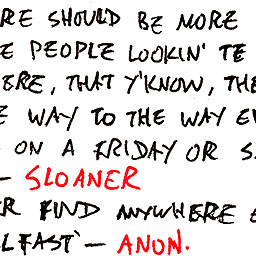 RE SHOULD BE MORE
E PEOPLE LOOKIN' TE
ERE, THAT Y'KNOW, THE
E WAY TO THE WAY EV
ON A FRIDAY OR S
— SLOANER
ER FIND ANYWHERE E
LFAST' — ANON.